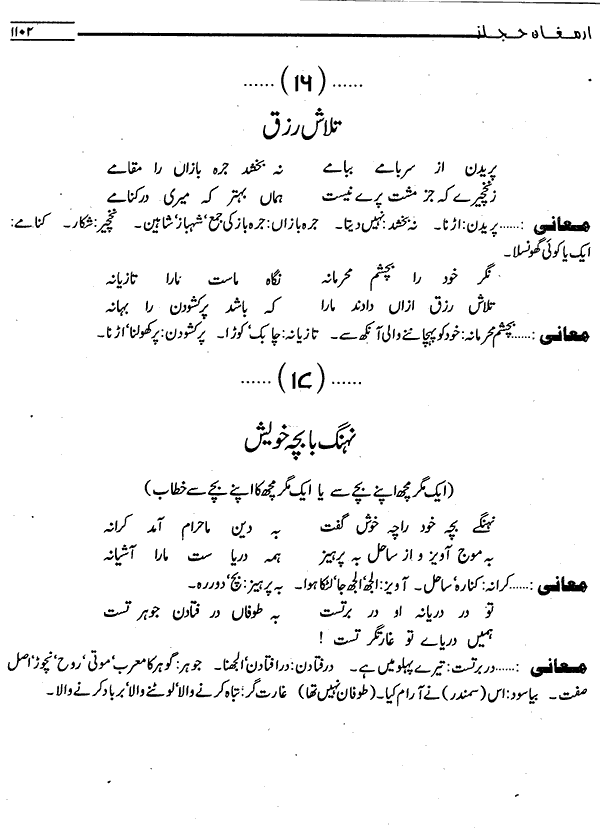 ارمغان حجاز
۱۱۰۲
...... (۱۶) ......
تلاش رزق
پریدن از سر بامے ببامے نہ بخشد جرہ بازاں را مقامے
زنخچیرے کہ جز مشت پرے نیست ہماں بہتر کہ میری در کنامے
معانی :......پریدن:اڑنا۔ نہ بخشد:نہیں دیتا۔ جرہ بازاں:جرہ باز کی جمع'شہباز'شاہین۔ نخچیر:شکار۔ کنامے:
ایک یا کوئی گھونسلا۔
نگر خود را بچشم محرمانہ نگاہ ماست مارا تازیانہ
تلاش رزق ازاں دادند مارا کہ باشد پرکشودن را بہانہ
معانی :......بچشم محرمانہ:خود کو پہچاننے والی آنکھ سے۔ تازیانہ:چابک'کوڑا۔ پرکشودن:پر کھولنا'اڑنا۔
...... (۱۷) ......
نہنگ با بچہ خویش
(ایک مگر مچھ اپنے بچے سے یا ایک مگر مچھ کا اپنے بچے سے خطاب)
نہنگے بچہ خود راچہ خوش گفت بہ دین ماحرام آمد کرانہ
بہ موج آویز و از ساحل بہ پرہیز ہمہ دریا ست مارا آشیانہ
معانی :......کرانہ:کنارہ'ساحل۔ آویز:الجھ'الجھ جا'لٹکا ہوا۔ بہ پرہیز:بچ'دور رہ۔
تو در دریانہ او در برتست بہ طوفاں در فتادن جوہر تست
ہمیں دریاے تو غارتگر تست !
معانی :......در برتست:تیرے پہلو میں ہے۔ درفتادن:درافتادن:الجھنا۔ جوہر:گوہر کا معرب'موتی'روح'نچوڑ'اصل
صفت۔ بیاسود:اس (سمندر) نے آرام کیا۔ (طوفان نہیں تھا) غارت گر:تباہ کرنے والا'لوٹنے والا'برباد کرنے والا۔